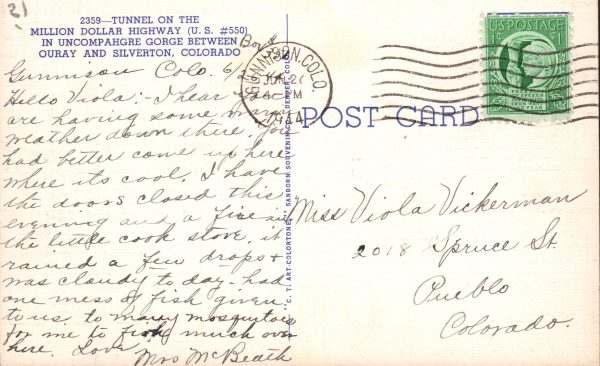 21
2359—TUNNEL ON THE
MILLION DOLLAR HIGHWAY (U. S. #550)
IN UNCOMPAHGRE GORGE BETWEEN
OURAY AND SILVERTON, COLORADO
Gunnison Colo. 6/
Hello Viola:- I hear you
are having some
weather down there. You
had better come up here
where its cool. I have
the doors closed this
evening and a fire in
the little cook stove. it
rained a few drops &
was cloudy to day - had
one mess of fish given
to us. to many mosquitoes
for me to fish much over
here. Love
Mrs McBeath
"C. T. ART-COLORTONE"
SANBORN SOUVENIR CO., DENVER, COLO.
GUNNISON, COLO.
JUN 2
PM
1944
POST CARD
U.S. POSTAGE
1¢ 1¢
FREEDOM
OF SPEECH
AND RELIGION
FROM WANT
AND FEAR
Miss Viola Vickerman
2018 Spruce St.
Pueblo
Colorado.